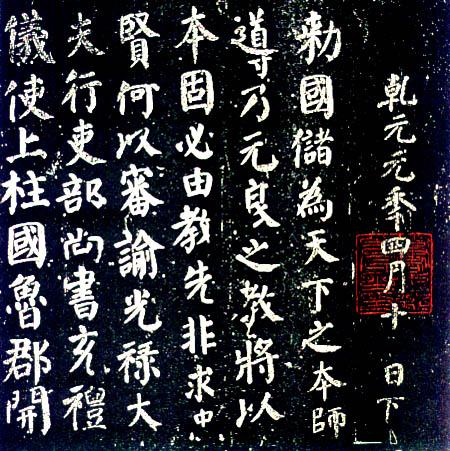 乾元元秊四月十 日下
勑國儲為天下之本師
導乃元良之教將以
本固必由教先非求忠
賢何以審諭光祿大
夫行吏部尚書充禮
儀使上柱國魯郡開